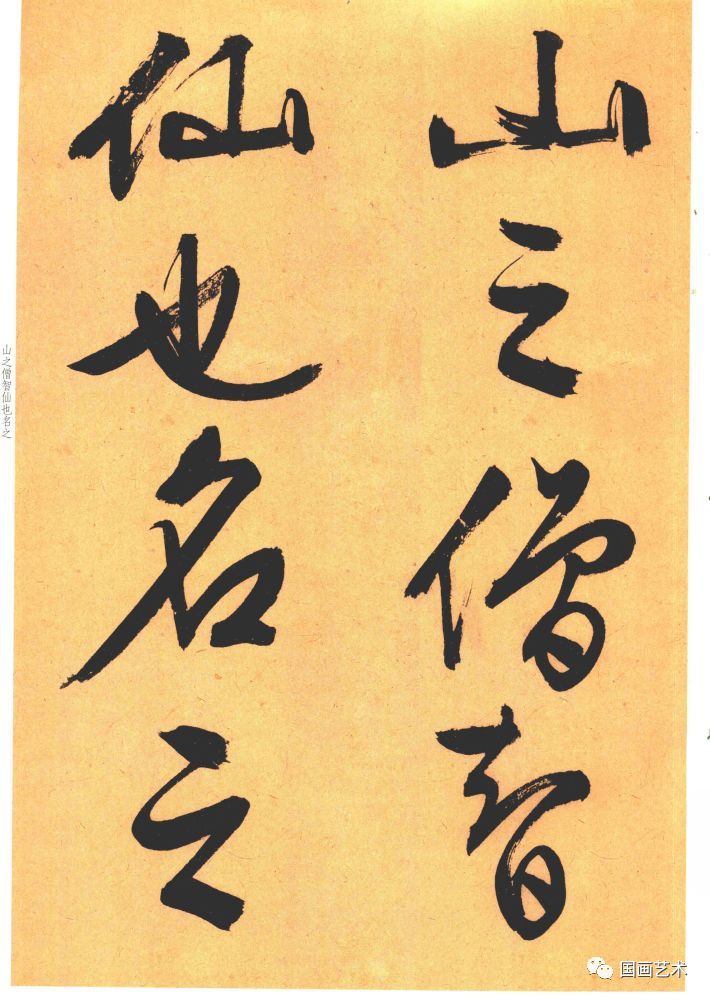 山之僧智
仙也名之
山之僧智仙也名之
国画艺术